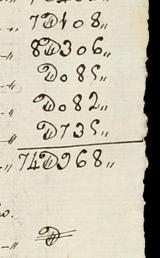 „ 7D108„
8D306„
D085„
D082„
„ D735„
„ 74D968„
o.
„
D